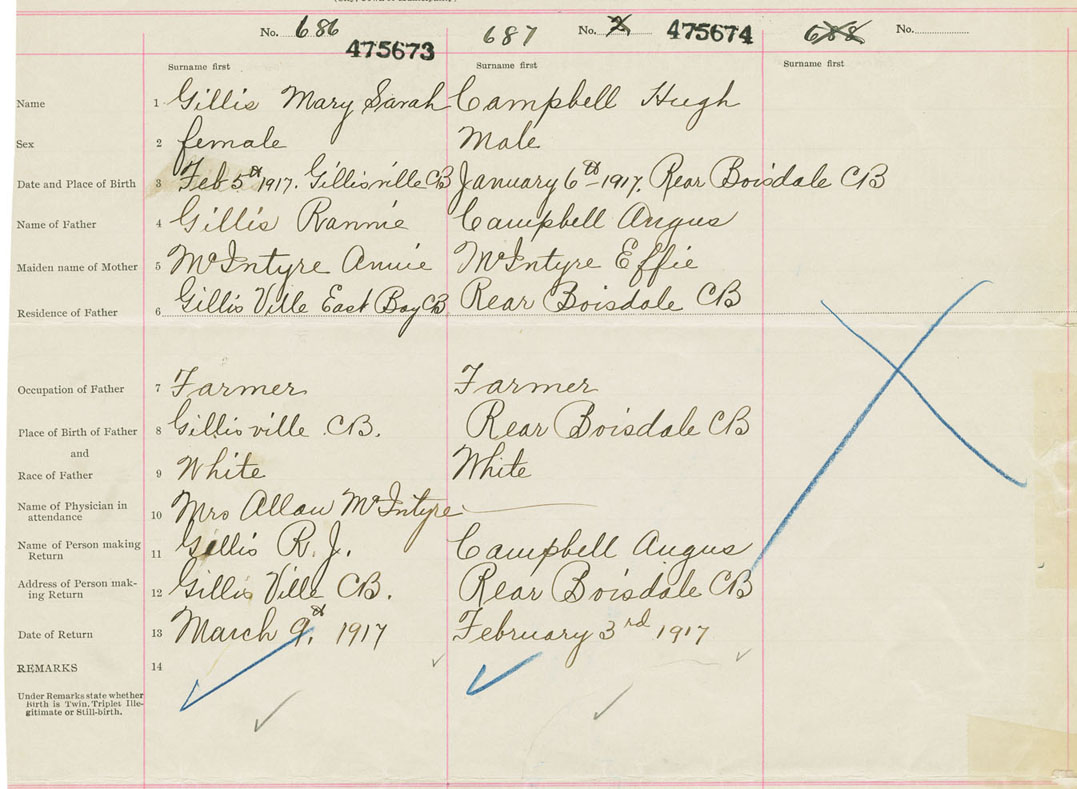 No. 686 475673 687 No. 2 475674 688 No.
Surname first Surname first Surname first
Name 1 Gillis Mary Sarah Campbell Hugh
Sex 2 female Male
Date and Place of Birth 3 Feb 5th 1917. Gillisville CB January 6th - 1917. Rear Boisdale CB
Name of Father 4 Gillis Rannie Campbell Angus
Maiden name of Mother 5 McIntyre Annie McIntyre Effie
Residence of Father 6 Gillis Ville East Bay CB Rear Boisdale CB
Occupation of Father 7 Farmer Farmer
Place of Birth of Father 8 Gillisville CB. Rear Boisdale CB
and
Race of Father 9 White White
Name of Physician in
attendance 10 Mrs Allan McIntyre
Name of Person making
Return 11 Gillis R. J. Campbell Angus
Address of Person mak-
ing Return 12 Gillis Ville CB. Rear Boisdale CB
Date of Return 13 March 9th, 1917 February 3rd 1917
REMARKS 14
Under Remarks state whether
Birth is Twin, Triplet Ille-
gitimate or Still-birth.